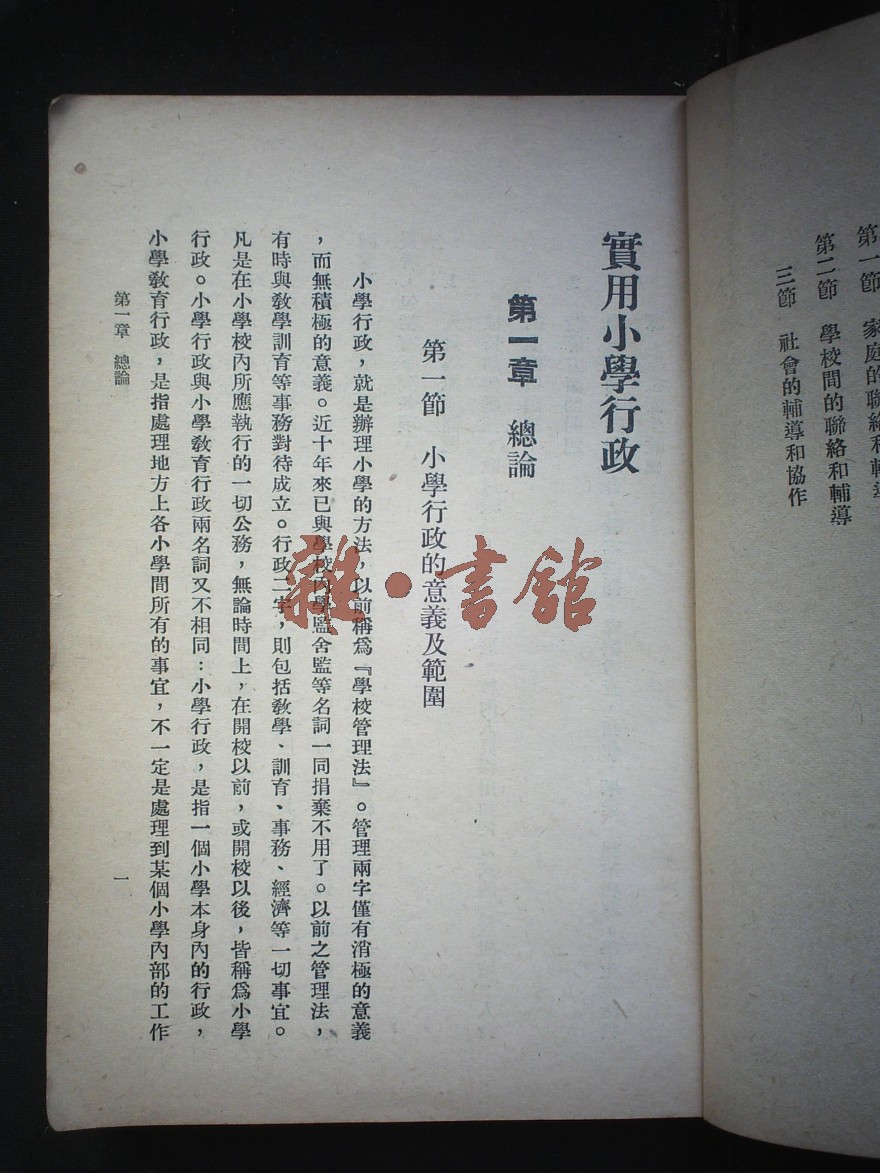 第一節 家庭的聯絡和輔導
第二節 學校間的聯絡和輔導
三節 社會的輔導和協作
實用小學行政
第一章 總論
第一節 小學行政的意義及範圍
小學行政，就是辦理小學的方法，以前稱爲『學校管理法』。管理兩字僅有消極的意義
，而無積極的意義。近十年來已與學校內學監舍監等名詞一同捐棄不用了。以前之管理法，
有時與敎學訓育等事務對待成立。行政二字，則包括敎學、訓育、事務、經濟等一切事宜。
凡是在小學校內所應執行的一切公務，無論時間上，在開校以前，或開校以後，皆稱爲小學
行政。小學行政與小學敎育行政兩名詞又不相同：小學行政，是指一個小學本身內的行政，
小學敎育行政，是指處理地方上各小學間所有的事宜，不一定是處理到某個小學內部的工作
第一章 總論
一
雜·書館